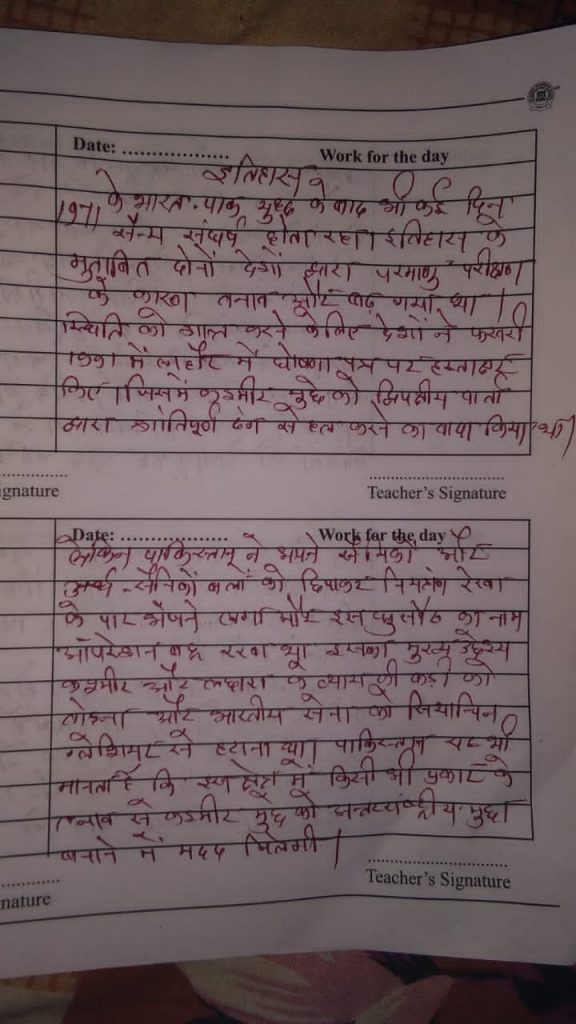 Date: ..................... Work for the day
इतिहास
1971 के भारत-पाक युद्ध के बाद भी कई दिन
सैन्य संघर्ष होता रहा। इतिहास के
मुताबित दोनों देशों द्वारा परमाणु परीक्षण
के कारण तनाव और बढ़ गया था।
स्थिति को शान्त करने के लिए देशों ने फरवरी
1991 में लाहौर में घोषणा पत्र पर हस्ताक्षर
किए। जिसमें कश्मीर मुद्दे को द्विपक्षीय वार्ता
द्वारा शांतिपूर्ण ढंग से हल करने का वादा किया था।
ignature
Teacher's Signature
Date: ..................... Work for the day
लेकिन पाकिस्तान ने अपने सैनिकों और
अर्ध-सैनिकों बलों को छिपाकर नियंत्रण रेखा
के पार भेजने लगा और इस घुसपैठ का नाम
ऑपरेशन बद्र रखा था इसका मुख्य उद्देश्य
कश्मीर और लद्दाख के बीच की कड़ी को
तोड़ना और भारतीय सेना को सियाचिन
ग्लेशियर से हटाना था। पाकिस्तान यह भी
मानता है कि इस क्षेत्र में किसी भी प्रकार के
तनाव से कश्मीर मुद्दे को अन्तरराष्ट्रीय मुद्दा
बनाने में मदद मिलेगी।
nature
Teacher's Signature